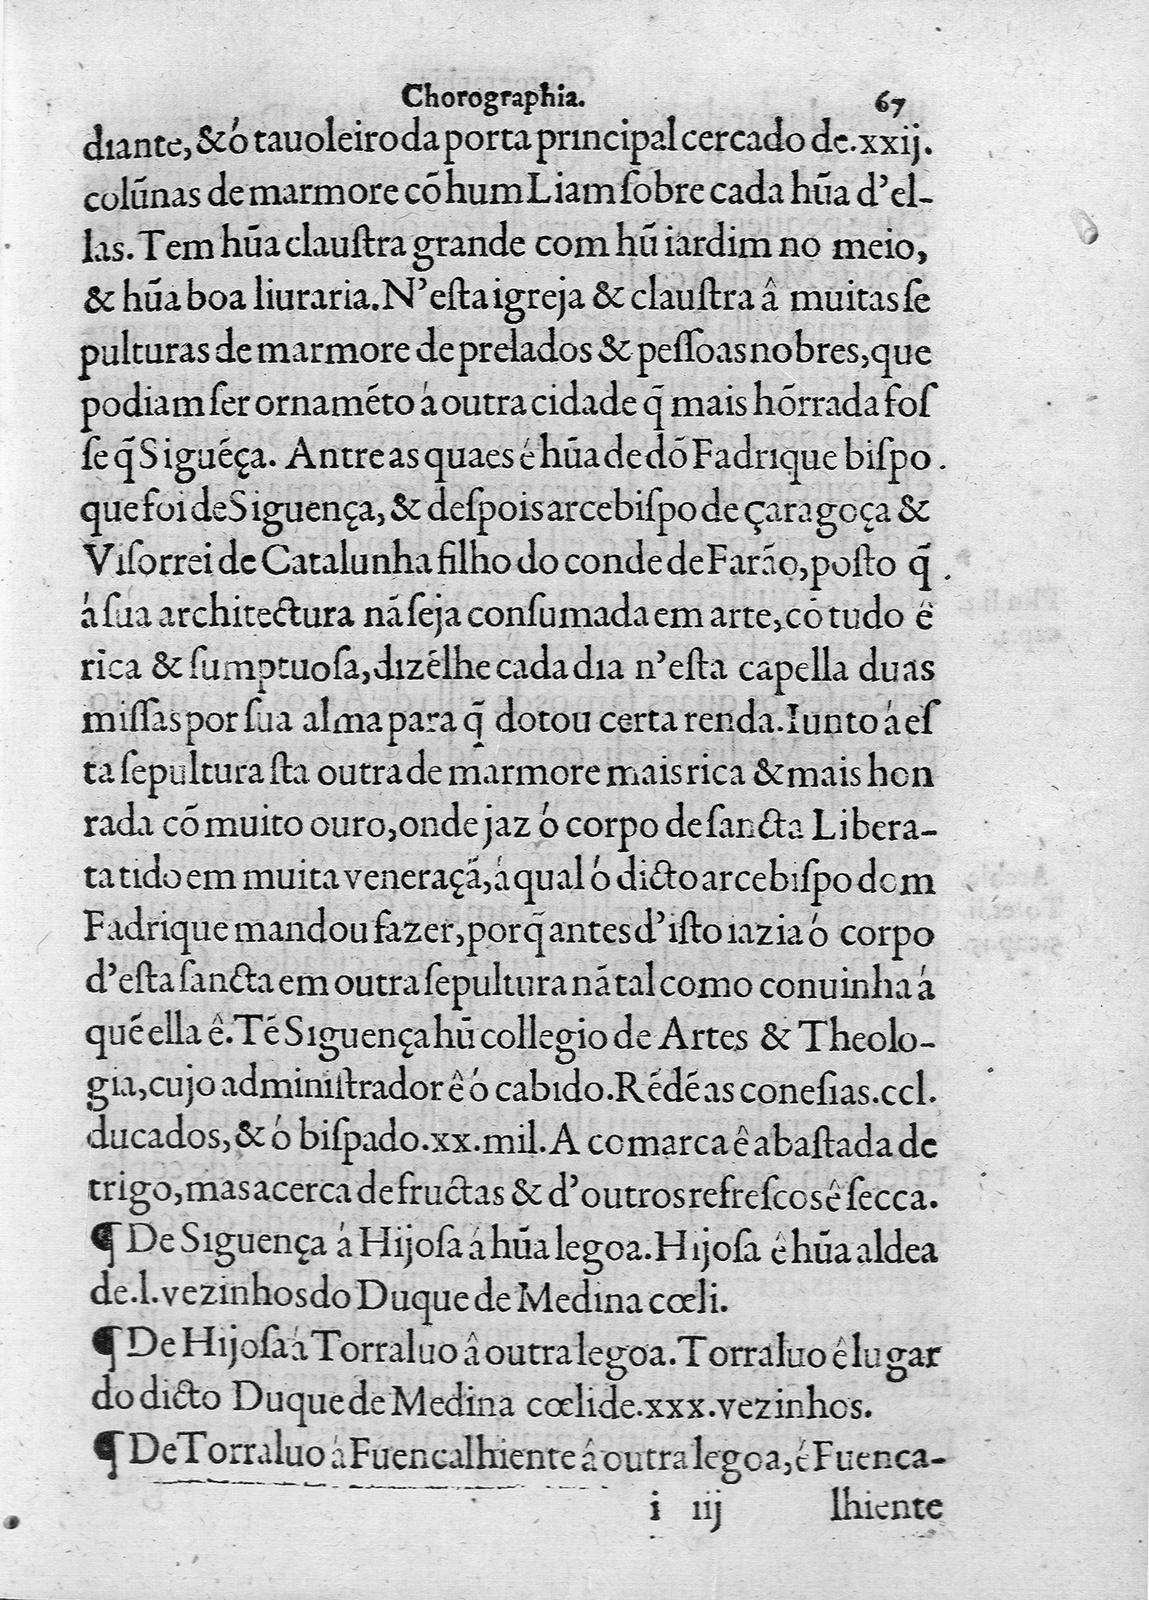 Chorographia. 67
diante, &ó tauoleiro da porta principal cercado de.xxij.
colũnas de marmore cõ hum Liam ſobre cada hũa d'el-
las. Tem hũa clauſtra grande com hũ iardim no meio,
& hũa boa liuraria. N'eſta igreja & clauſtra â muitas ſe
pulturas de marmore de prelados & peſſoas nobres, que
podiam ſer ornamẽto á outra cidade q̃ mais hõrrada foſ
ſe q̃ Siguẽça. Antre as quaes é hũa de dõ Fadrique biſpo.
que foi de Siguença, & deſpois arcebiſpo de Çaragoça &
Viſorrei de Catalunha filho do conde de Farão, poſto q̃.
á ſua architectura nã ſeja conſumada em arte, cõ tudo ê
rica & ſumptuoſa, dizẽlhe cada dia n'eſta capella duas
miſſas por ſua alma para q̃ dotou certa renda. Iunto á eſ
ta ſepultura ſta outra de marmore mais rica & mais hon
rada cõ muito ouro, onde jaz ó corpo de ſancta Libera-
ta tido em muita veneraçã, á qual ó dicto arcebiſpo dom
Fadrique mandou fazer, porq̃ antes d'iſto iazia ó corpo
d'eſta ſancta em outra ſepultura nã tal como conuinha á
quẽ ella ê. Tẽ Siguença hũ collegio de Artes & Theolo-
gia, cujo adminiſtrador ê ó cabido. Rẽdẽ as coneſias.ccl.
ducados, & ó biſpado.xx.mil. A comarca ê abaſtada de
trigo, mas acerca de fructas & d'outros refreſcos ê ſecca.
¶ De Siguença á Hijoſa á hũa legoa. Hijoſa ê hũa aldea
de.l.vezinhos do Duque de Medina cœli.
¶ De Hijoſa á Torraluo â outra legoa. Torraluo ê lugar
do dicto Duque de Medina cœli de.xxx.vezinhos.
¶ De Torraluo á Fuencalhiente â outra legoa, é Fuenca-
i iij lhiente